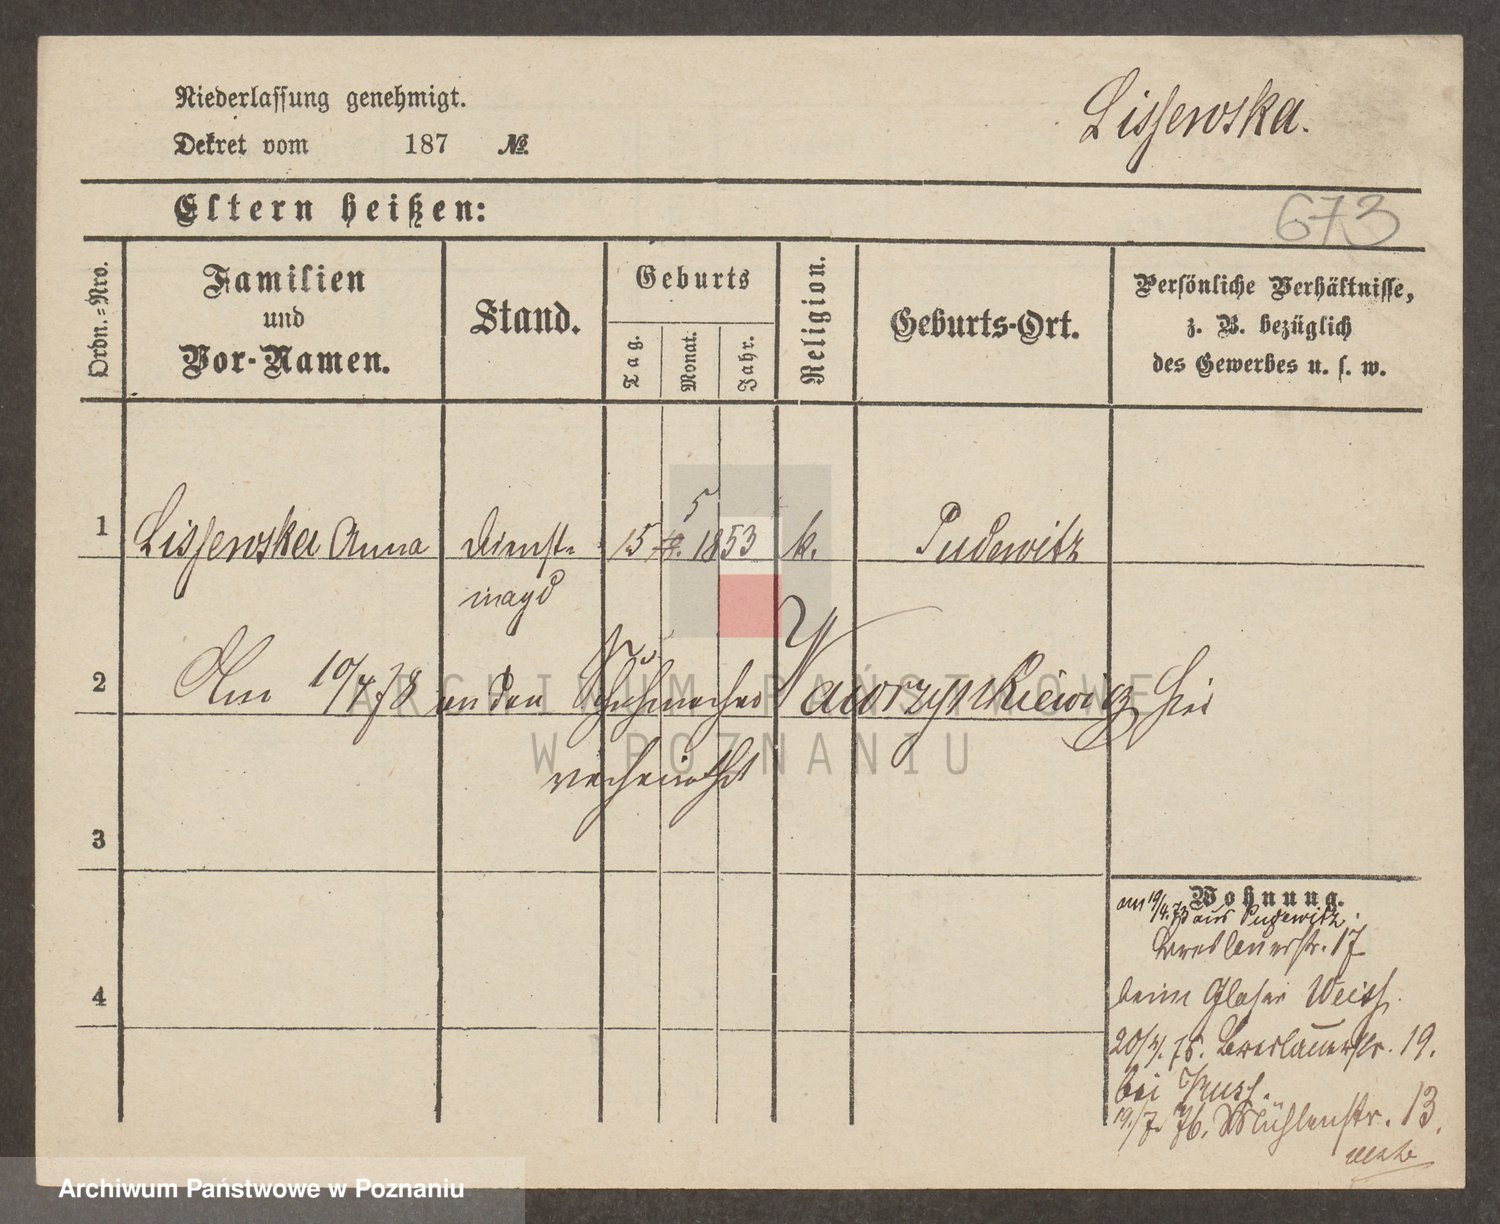 Niederlassung genehmigt.
Dekret vom 187 №
Lissewska.
Eltern heißen:
673
Ordn.-Nro.
Familien
und
Vor-Namen.
Stand.
Geburts
Tag.
Monat.
Jahr.
Religion.
Geburts-Ort.
Persönliche Verhältnisse,
z. B. bezüglich
des Gewerbes u. s. w.
5
1 Lissewska Anna Dienst- 15 1853 k. Pudewitz
magd
2 Am 10/4 78 an den Schuhmacher Wawrzynkiewicz hier
verheirathet
3
Wohnung.
am 19/4. 73 aus Pudewitz.
Breslauerstr. 17
beim Glaser Weiss.
4
20/4. 75. Breslauerstr. 19.
bei
19/7. 76. Mühlenstr. 13.
ARCHIWUM PAŃSTWOWE
W POZNANIU
Archiwum Państwowe w Poznaniu